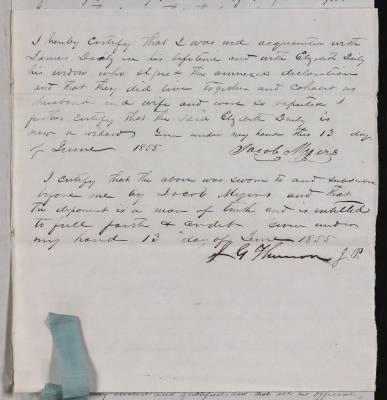 I hereby certify that I was well acquainted with
James Daily in his lifetime and with Elizabeth Daily
his widow who signed the annexed declaration
and that they did live together and cohabit as
husband and wife and were so reputed I
further certify that the said Elizabeth Daily is
now a widow Given under my hand this 13 day
of June 1855 Jacob Myers
I certify that the above was sworn to and subscribed
before me by Jacob Myers and that
the deponent is a man of truth and is entitled
to full faith & credit Given under
my hand 13 day of June 1855
J. P.
and qualified and that all his official